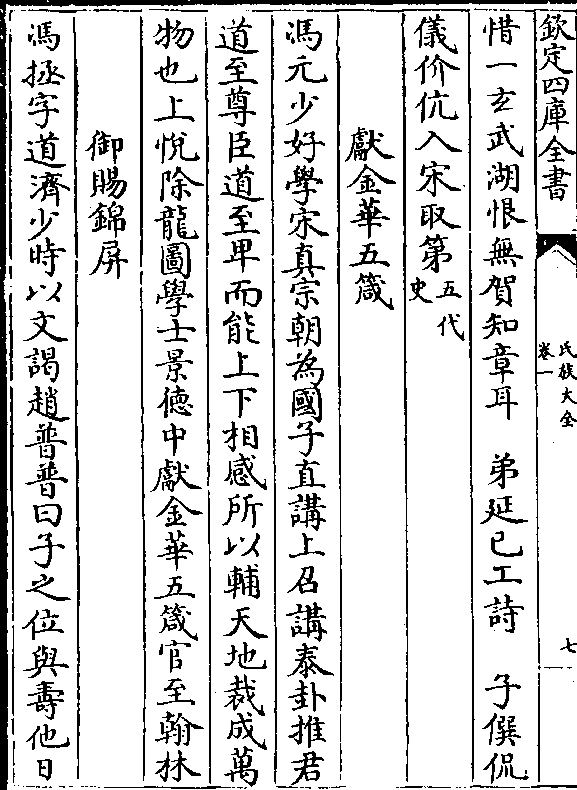 欽定四庫全書
氏族大全
卷一
七
惜一玄武湖恨無賀知章耳　弟延已工詩　子僎侃
儀价伉入宋取第五代史
獻金華五箴
馮元少好學宋真宗朝為國子直講上召講泰卦推君
道至尊臣道至卑而能上下相感所以輔天地裁成萬
物也上悅除龍圖學士景德中獻金華五箴官至翰林
御賜錦屏
馮拯字道濟少時以文謁趙普普曰子之位與壽他日